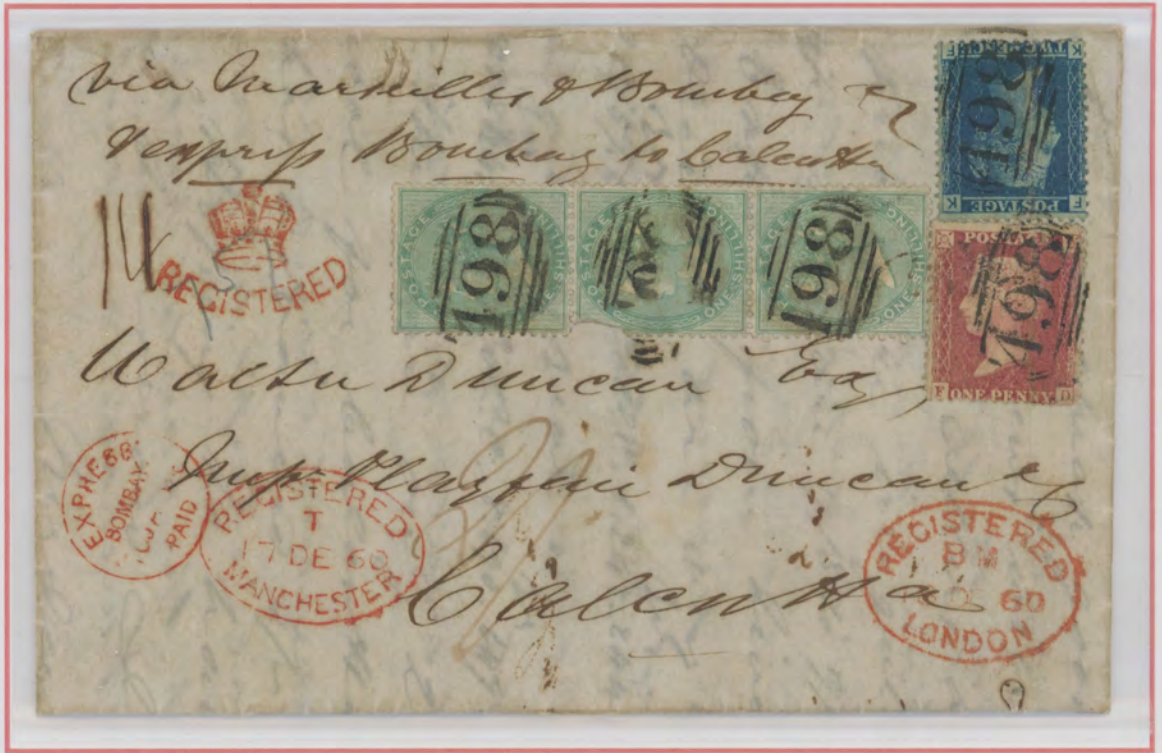 via Marseilles & Bombay &
& express Bombay to Calcutta
REGISTERED
POSTAGE ONE SHILLING
POSTAGE ONE SHILLING
POSTAGE ONE SHILLING
498
498
498
K F
TWO PENCE
POSTAGE
F K
498
POSTAGE
ONE PENNY
D
498
Walter Duncan Esq
Playfair Duncan & C
Calcutta
EXPRESS
BOMBAY
PAID
REGISTERED
T
17 DE 60
MANCHESTER
REGISTERED
B M
DE 60
LONDON